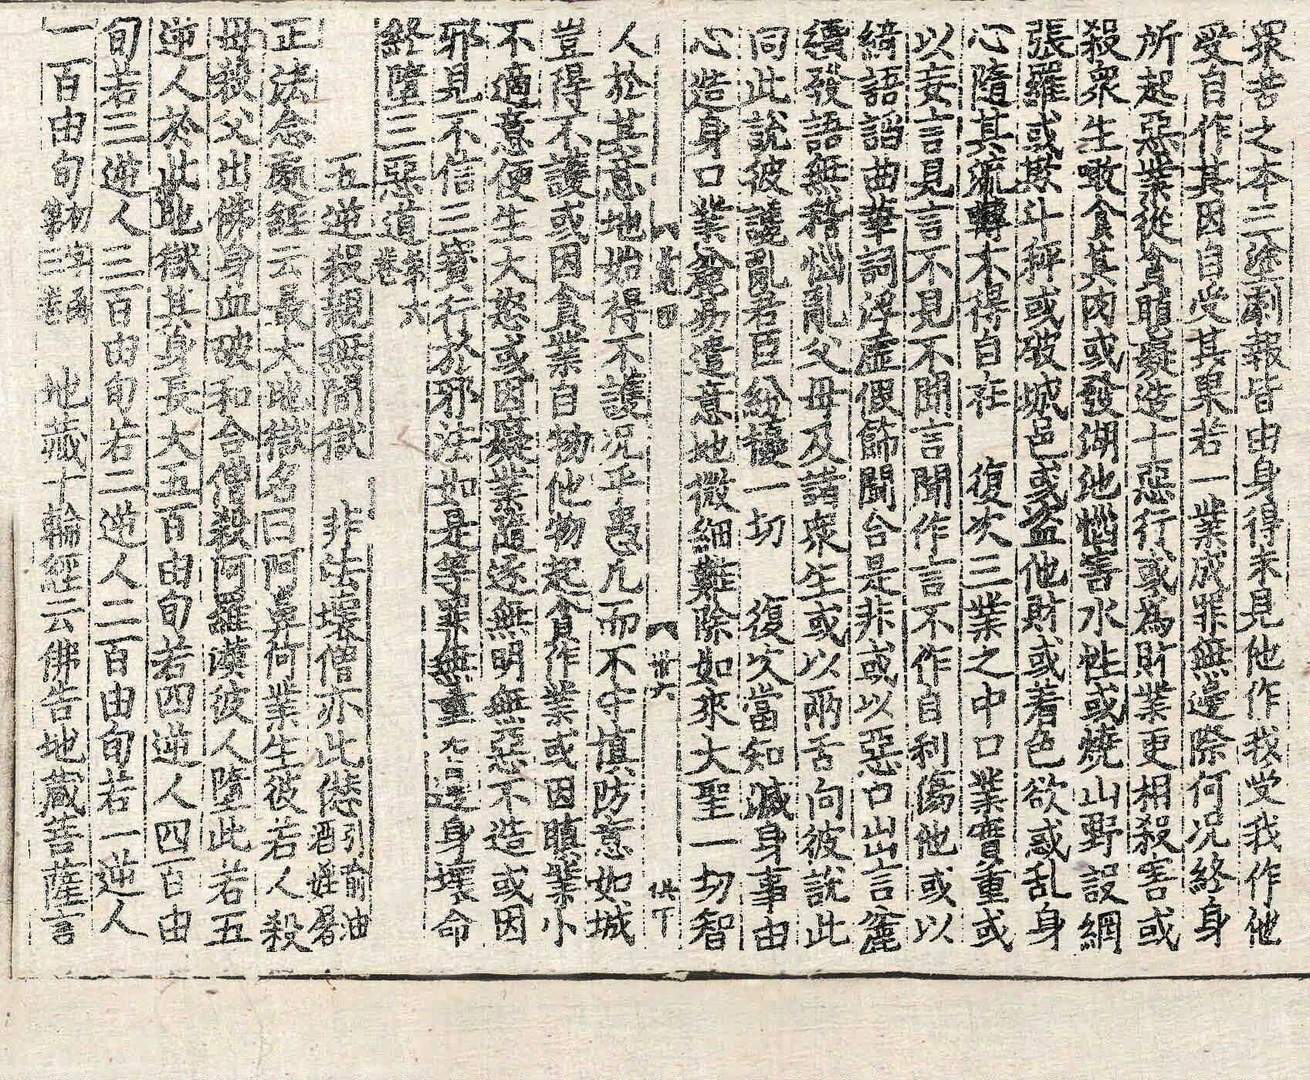 眾苦之本三塗劇報皆由身得未見他作我受我作他
受自作其因自受其果若一業成罪無邊際何況終身
所起惡業從貪瞋癡造十惡行或為財業更相殺害或
殺衆生噉食其肉或發湖池惱害水性或燒山野設網
張羅或欺斗秤或破城邑或盜他財或着色欲惑乱身
心隨其流轉不得自在　復次三業之中口業實重或
以妄言見言不見不聞言聞作言不作自利傷他或以
綺語謟曲華詞浮虛假餝鬪合是非或以惡口出言麁
獷發語無藉惱亂父母及諸衆生或以兩舌向彼說此
同此說彼讒亂君臣紛擾一切　復次當知滅身事由
心造身口業麁易遣意地微細難除如來大聖一切智
人於其意地始得不護况乎愚凡而不守慎防意如城
豈得不護或因貪業自物他物起貪作業或因瞋業小
不適意便生大恣或因癡業隨逐無明無惡不造或因
邪見不信三寶行於邪法如是等罪無量無邊身壞命
終墮三惡道第六卷
五逆殺親無間獄　非法壞僧亦此愆
正法念處經云最大地獄名曰阿鼻何業生彼若人殺
母殺父出佛身血破和合僧殺阿羅漢彼人墮此若五
逆人於此地獄其身長大五百由旬若四逆人四百由
旬若三逆人三百由旬若二逆人二百由旬若一逆人
一百由旬　地藏十輪經云佛告地藏菩薩言